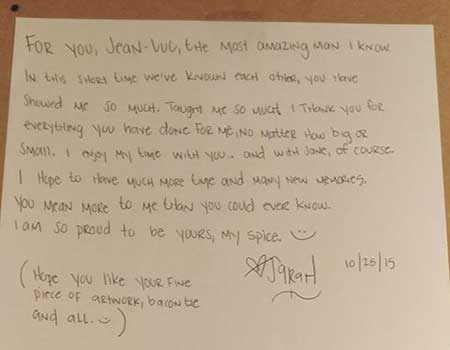 For you, Jean-Luc, the most amazing man I know.
In this short time we've known each other, you have
showed me so much. Taught me so much. I thank you for
everything you have done for me, no matter how big or
small. I enjoy my time with you.. and with Jane, of course.
I hope to have much more time and many new memories.
You mean more to me than you could ever know.
I am so proud to be yours, my spice. :)
♡Sarah 10/25/15
(Hope you like your fine
piece of artwork, bacontie
and all. :) )